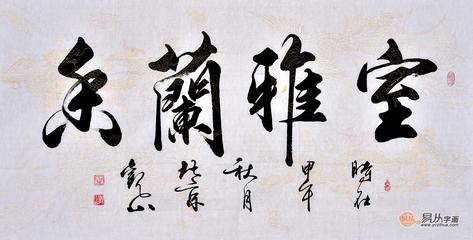 室雅蘭香
時在
甲午
秋月
觀山
易从字画
www.yczihua.com